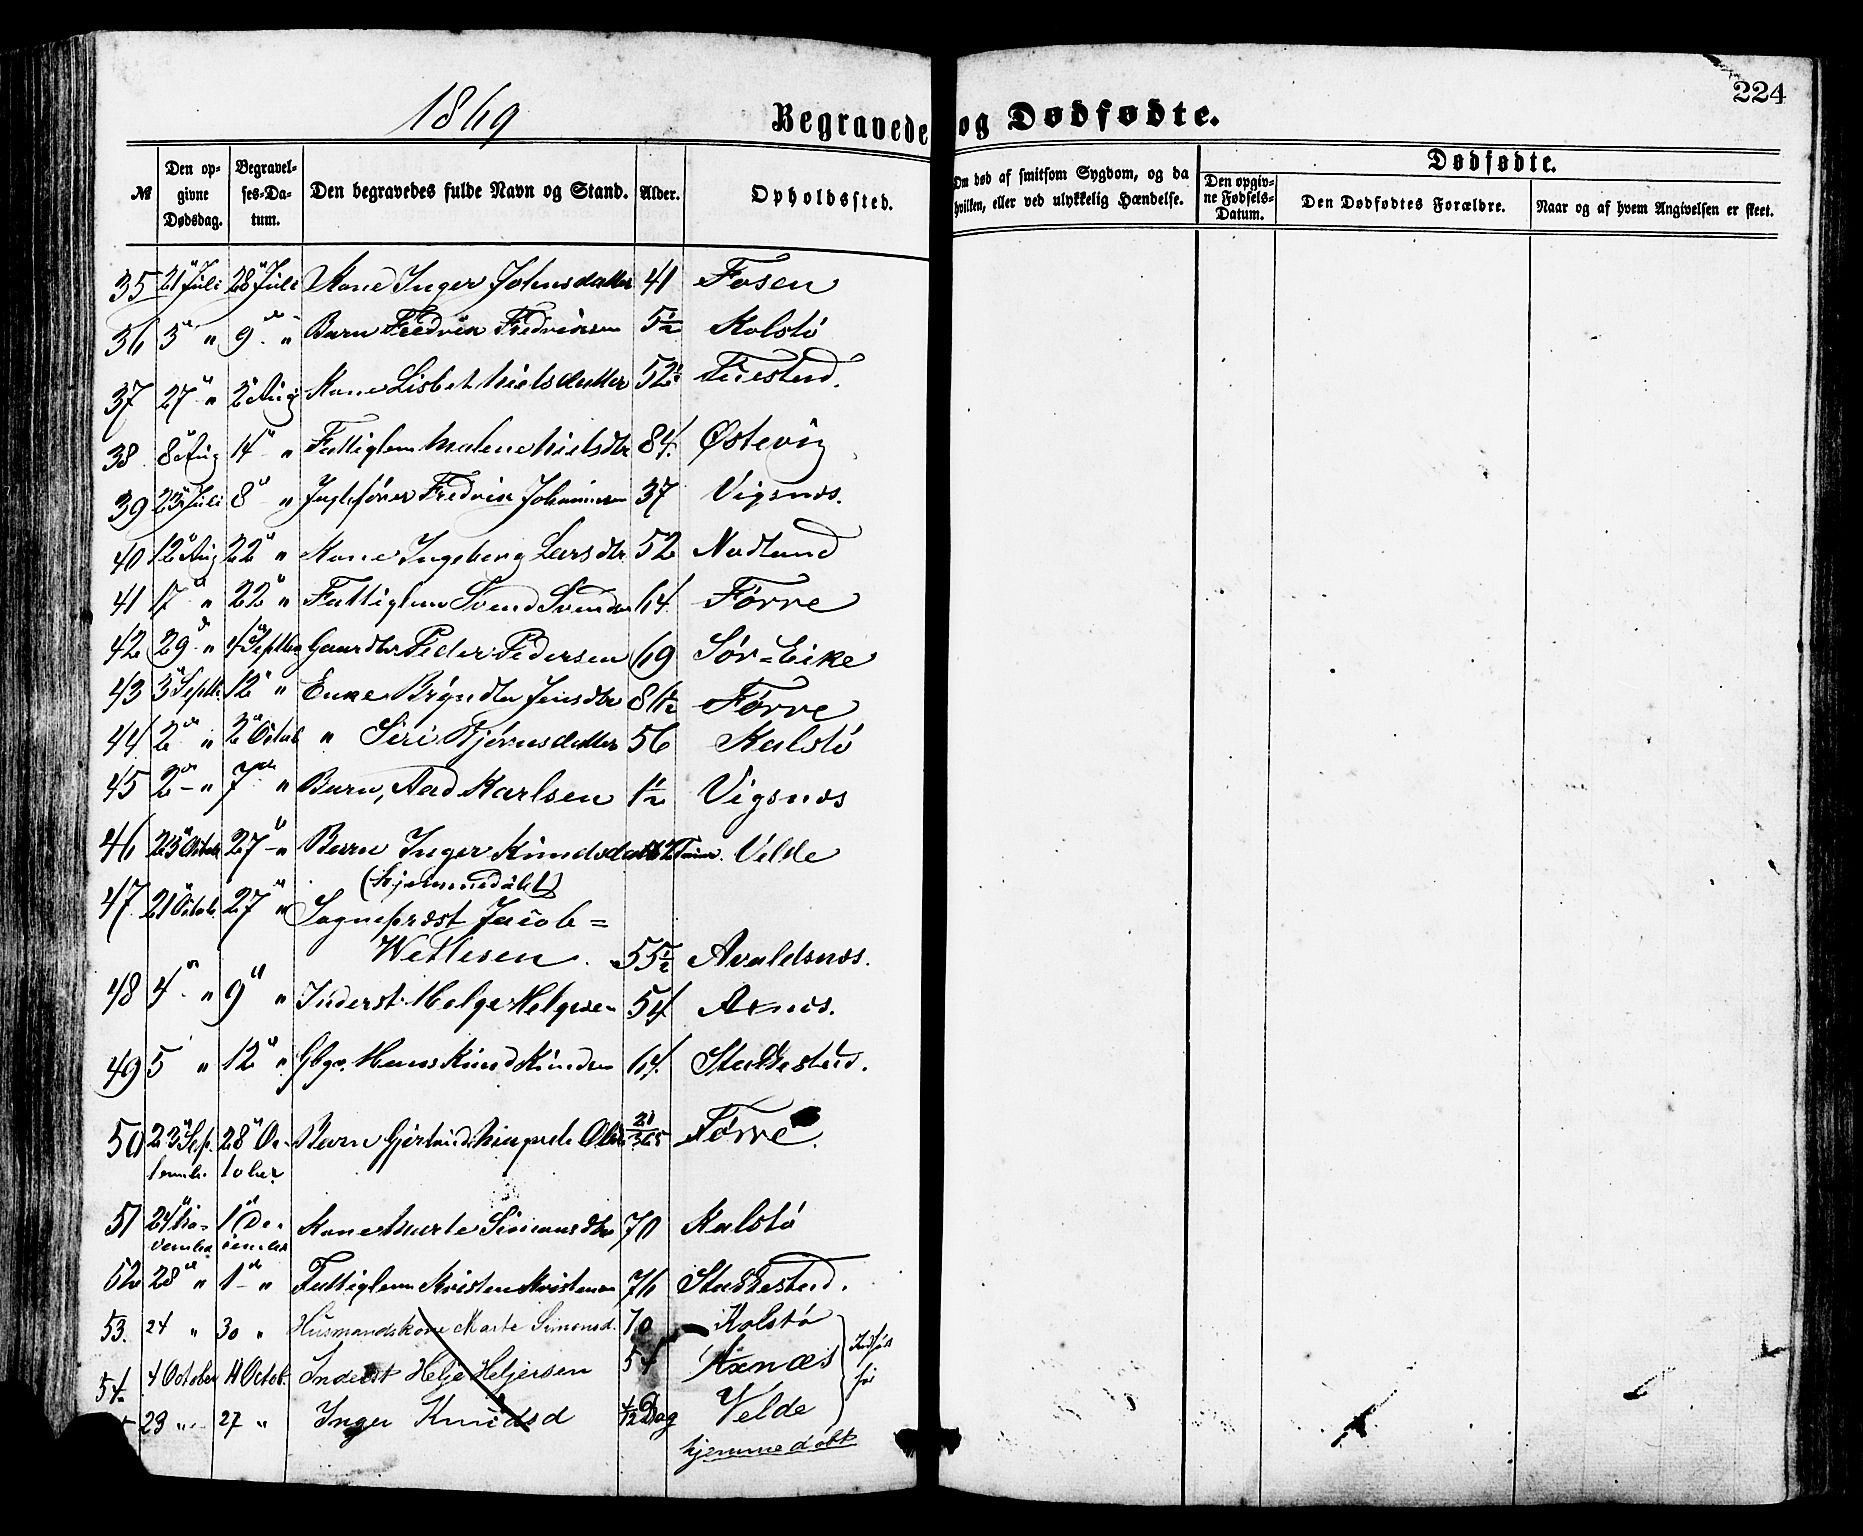 224
1869
Begravede og Dødfødte.
№ Den opgivne Dødsdag. Begravelses-Datum. Den begravedes fulde Navn og Stand. Alder. Opholdssted. Om død af smitsom Sygdom, og da hvilken, eller ved ulykkelig Hændelse. Dødfødte.
Den opgivne Fødsels-Datum. Den Dødfødtes Forældre. Naar og af hvem Angivelsen er skeet.
35 21 Juli 28 Juli Kone Inger Johnsdatter 41 Fosen
36 3 " 9 " Barn Fredrik Fredriksen 5½ Kolstö
37 27 " 2 Aug Kone Lisbet Nielsdatter 52½ Tuestad.
38 8 Aug 14 " Fattiglem Malene Nielsdtr 84 Østevig
39 23 Juli 8 " Fredrik Johannesen 37 Vigsnæs.
40 12 Aug 22 " Kone Ingeborg Larsdtr 52 Nodland
41 17 " 22 " Fattiglem Svend Svendsen 64 Förre
42 29 " 4 Septbr Gaardbr Peder Pedersen 69 Sör-Eike
43 3 Septbr 12 " Enke Bryndle Jensdtr 81½ Förre
44 2 " 2 Octob " Siri Bjørnsdatter 56 Kalstö
45 2 - " 7 " Barn, Aad Karlsen 1½ Vigsnæs
46 23 Octob 27 - " Barn Inger Knudsdatt 12 Timer. Velde
(hjemmedøbt)
47 21 Octob. 27 " Sognepræst Jacob=
Wettesen. 55½ Avaldsnæs.
48 4 " 9 " Inderst Helge Helgesen 54 Axnæs.
49 5 " 12 " Gbgr. Hans Knud Knudsen 64 Stakkestad.
50 23 Sep- 28 Oc- Barn Gjertrud Olsd 21/365 Förre.
tember tober
51 24 No- 1 De- Kone Marte Simonsdtr 70 Kalstö
vember cember
52 28 " 1 - " Fattiglem Kristen Kristensen 76 Stakkestad.
53. 24 " 30 " Husmandskone Marte Simonsd. 70 Kolstø
54. 4 October 11 Octob. Inderst Helje Heljersen 54 Axnæs
23 " 27 " Inger Knudsd ½ Dag Velde
hjemmedøbt